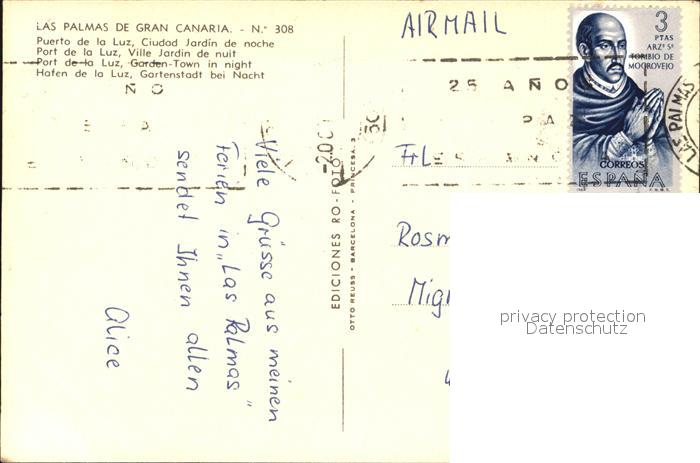 LAS PALMAS DE GRAN CANARIA. - N.° 308
Puerto de la Luz, Ciudad Jardín de noche
Port de la Luz, Ville Jardin de nuit
Port de la Luz, Garden-Town in night
Hafen de la Luz, Gartenstadt bei Nacht
Viele Grüsse aus meinen
Ferien in „Las Palmas"
sendet Ihnen allen
Alice
EDICIONES RO-FOTO
OTTO REUSS - BARCELONA - PRINCESA, 3
AIRMAIL
25 AÑO
PAZ
LAS PALMAS
3
PTAS
ARZº Sº
TORIBIO DE
MOGROVEJO
CORREOS
ESPAÑA
Frl
Rosm
Migr
privacy protection
Datenschutz